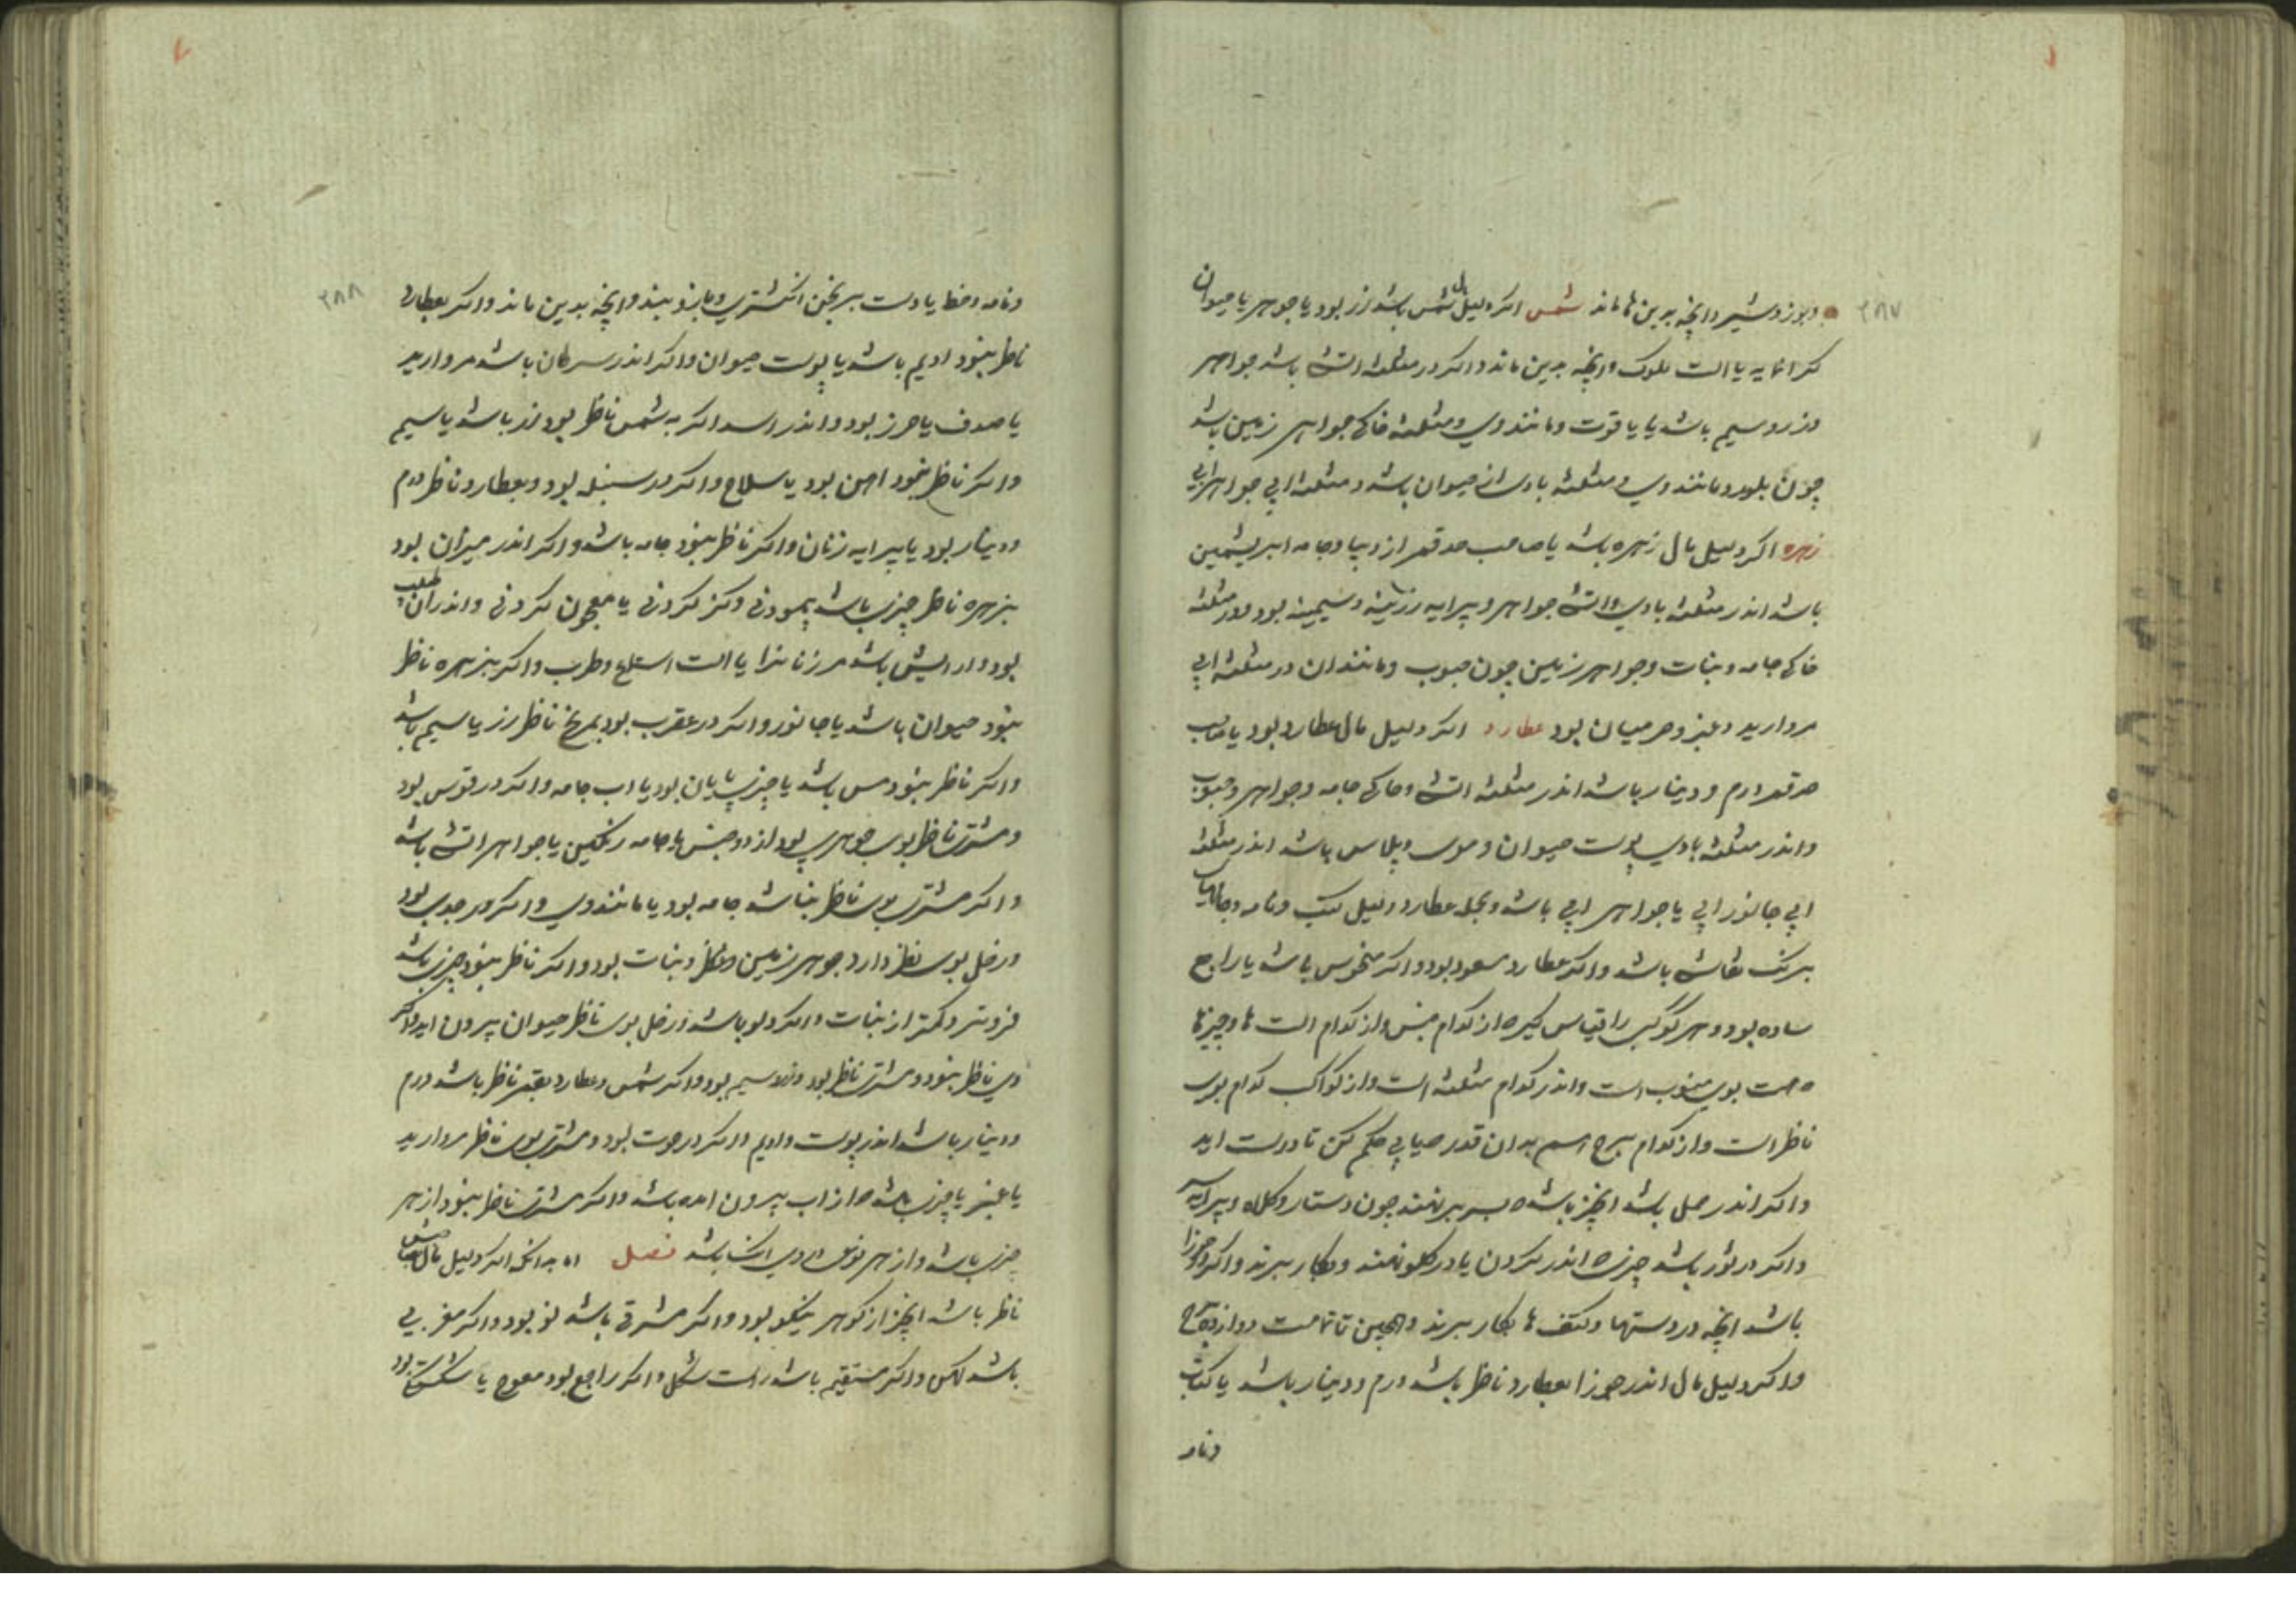 ۲۸۷
ویوز و شیر و انچه بدین ها ماند شمس اکر دلیل مال شمس باشد زر بود یا جوهر یا حیوان
کرانمایه یا الت ملوک و انچه بدین ماند و اکر در مثلثه اتشی باشد جواهر
و زر و سیم باشد یا یاقوت و مانند وی و مثلثه خاکی جواهر زمین باشد
چون بلور و مانند وی و مثلثه بادی از حیوان باشد و مثلثه ابی جواهر ابی
زهره اکر دلیل مال زهره باشد یا صاحب صدقه از دیبا و جامه ابریشمین
باشد اندر مثلثه بادی و اتشی جواهر و پیرایه زرینه و سیمینه بود و در مثلثه
خاکی جامه و نبات و جواهر زمین چون حبوب و مانند ان در مثلثه ابی
مروارید و عنبر و هر میان بود عطارد اکر دلیل مال عطارد بود یا صاحب
صدقه درم و دینار باشد اندر مثلثه اتشی و خاکی جامه و جواهر و حبوب
و اندر مثلثه بادی پوست حیوان و موی و پلاس باشد اندر مثلثه
ابی جانور ابی یا جواهر ابی باشد و بجمله عطارد دلیل کتب و نامه و جامهای
برنک نقاشی باشد و اکر عطارد مسعود بود و اکر منحوس باشد یا راجع
ساده بود و هر کوکبی را قیاس کیر ه از کدام جنس و از کدام الت ها و چیزها
ه است بوی منسوب است و اندر کدام مثلثه است و از کواکب کدام بوی
ناظر است و از کدام برج اسم بدان قدر صیابی حکم کن تا درست اید
و اکر اندر حمل باشد انچیز باشد ه بسر برنهند چون دستار و کلاه و پیرایه سر
و اکر در ثور باشد چیزی ه اندر کردن یا در کلو نهند و بکار برند و اکر در جوزا
باشد انچه در دستها و کتف ها بکار برند و همچنین تا تمامت دوازده برج
و اکر دلیل مال اندر جوزا بعطارد ناظر باشد درم و دینار باشد یا کتاب
و نامه
۲۸۸
و نامه و خط یا دست برنجن انکشتری و بازو بند و انچه بدین ماند و اکر بعطارد
ناظر نبود ادیم باشد یا پوست حیوان و اکر اندر سرطان باشد مروارید
یا صدف یا حرز بود و اندر اسد اکر به شمس ناظر بود زر باشد یا سیم
و اکر ناظر نبود اهن بود یا سلاح و اکر در سنبله بود و بعطارد ناظر درم
و دینار بود یا پیرایه زنان و اکر ناظر نبود جامه باشد و اکر اندر میزان بود
بزهره ناظر چیزی باشد پیمودنی و کز کردنی یا معجون کردنی و اندران طیب
بود و ارایش باشد مر زنانرا یا الت استماع و طرب و اکر بزهره ناظر
نبود حیوان باشد یا جانور و اکر در عقرب بود بمریخ ناظر زر یا سیم باشد
و اکر ناظر نبود مس باشد یا چیزی پایان بود یا اب جامه و اکر در قوس بود
و مشتری ناظر بوی جوهری بود از دو جنس یا جامه رنکین یا جواهر اتشی باشد
و اکر مشتری بوی ناظر نباشد جامه بود یا مانند وی و اکر در جدی بود
و زحل بوی نظر دارد جوهر زمین و نبات بود و اکر ناظر نبود چیزی باشد
فروتر و کمتر از نبات و اکر در دلو باشد و زحل بوی ناظر حیوان بیرون اید و اکر
وی ناظر نبود و مشتری ناظر بود و زر و سیم بود و اکر شمس و عطارد بقمر ناظر باشد درم
و دینار باشد اندر پوست و ادیم و اکر در حوت بود و مشتری بوی ناظر مروارید
یا عنبر یا چیزی باشد ه از اب بیرون امده باشد و اکر مشتری ناظر نبود از هر
چیزی باشد و از هر نوعی در وی اکنده باشد فصل اما بدانکه اکر دلیل مال بشمس
ناظر باشد انچیز از کوهر نیکو بود و اکر مشرقی باشد نو بود و اکر مغربی
باشد کهن و اکر مستقیم باشد راست شکل و اکر راجع بود معوج یا شکسته بود